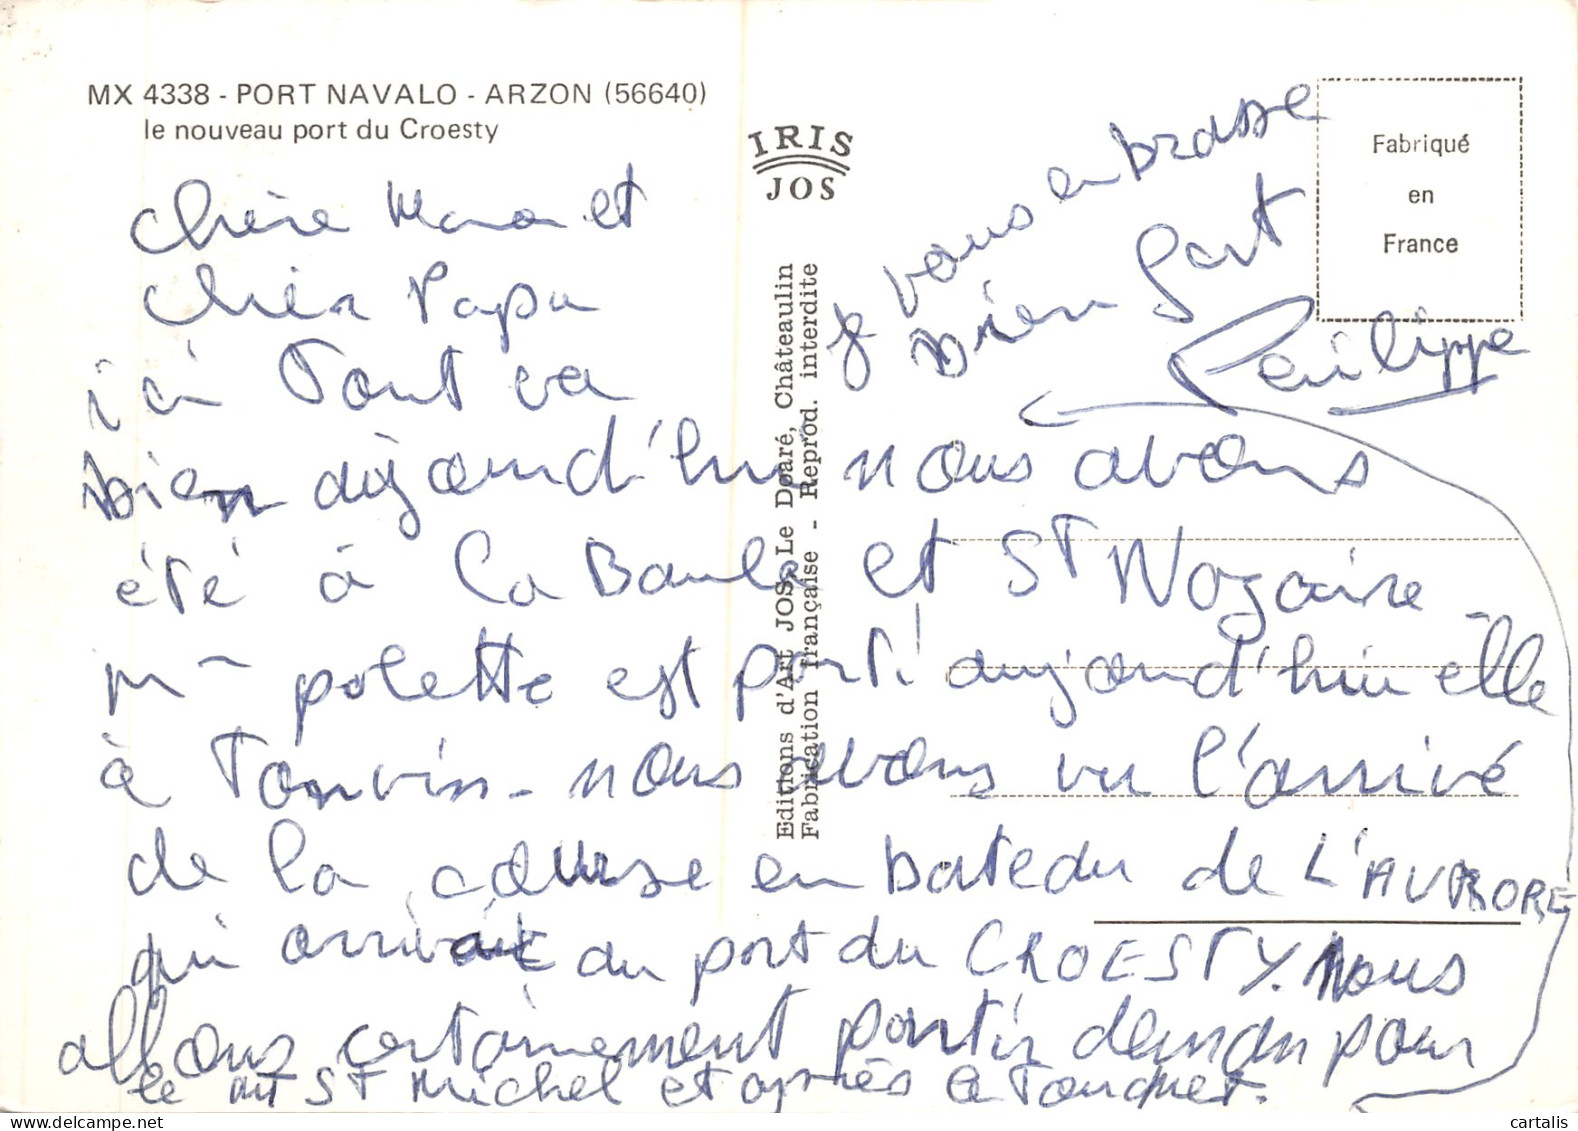 MX 4338 - PORT NAVALO - ARZON (56640)
le nouveau port du Croesty
IRIS
JOS
Fabriqué
en
France
Editions d'Art JOS Le Doaré, Châteaulin
Fabrication française - Reprod. interdite
Chère Maman et
cher Papa
ici Tout va
bien aujourd'hui nous avons
été à La Baule et ST Nazaire
polette est parti aujourd'hui elle
à Tonvin - nous avons vu l'arrivé
de la course en bateau de L'AURORE
qui arrivait au port du CROESTY. Nous
allons certainement partir demain pour
le mt ST Michel et après le Touquet.
je vous embrasse
bien fort
Philippe
cartalis